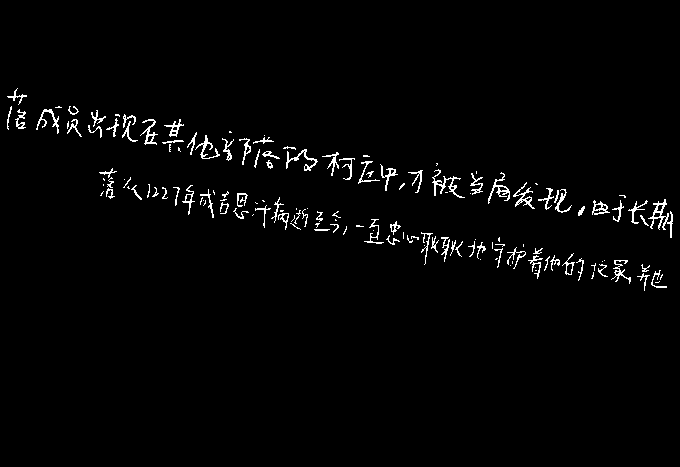 落成员出现在其他部落的村庄中，才被当局发现。由于长期
落从1227年成吉思汗病逝至今，一直忠心耿耿地守护着他的坟冢，并也